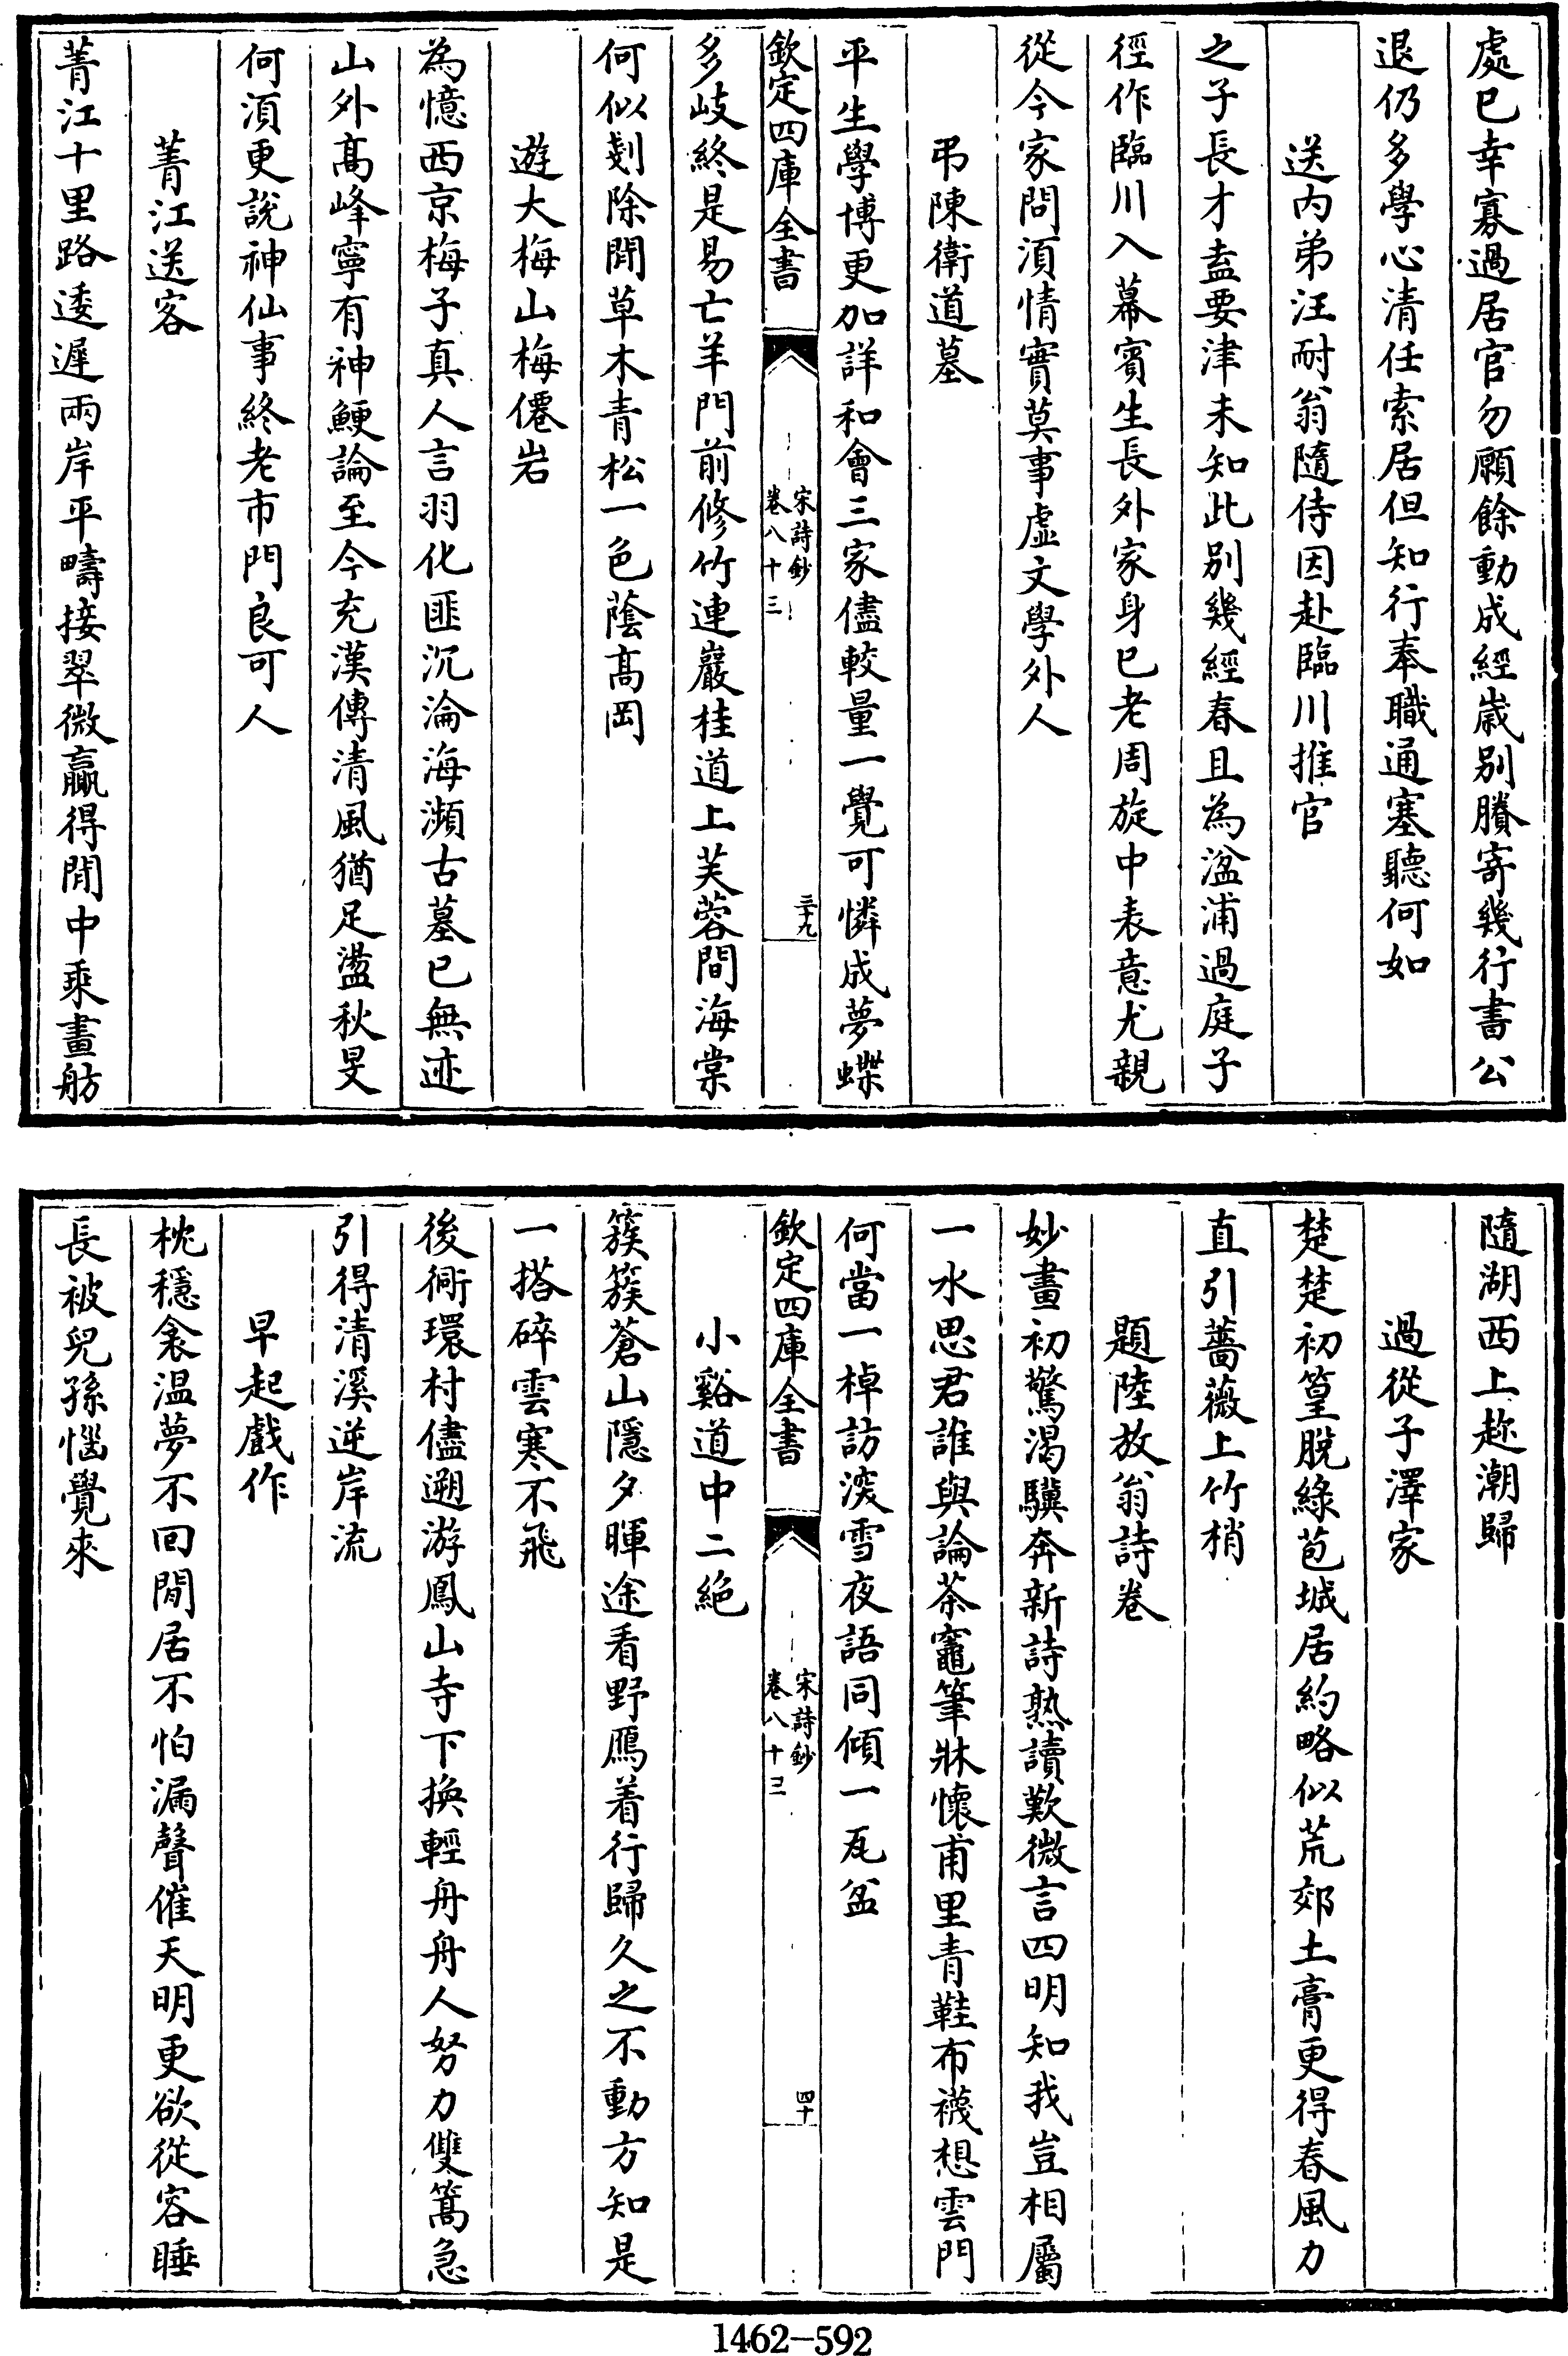 處已幸寡過居官勿願餘動成經歲别賸寄幾行書公
退仍多學心清任索居但知行奉職通塞聽何如
送内弟汪耐翁隨侍因赴臨川推官
之子長才盍要津未知此别幾經春且為湓浦過庭子
徑作臨川入幕賓生長外家身已老周旋中表意尤親
從今家問須情實莫事虛文學外人
弔陳衛道墓
平生學博更加詳和會三家儘較量一覺可憐成夢蝶
欽定四庫全書
宋詩鈔
卷八十三
三十九
多岐終是易亡羊門前修竹連巖桂道上芙蓉間海棠
何似剗除閒草木青松一色蔭髙岡
遊大梅山梅僊岩
為憶西京梅子真人言羽化匪沉淪海瀕古墓已無迹
山外髙峰寧有神鯁論至今充漢傳清風猶足盪秋旻
何須更說神仙事終老市門良可人
菁江送客
菁江十里路逶遲兩岸平疇接翠微贏得閒中乘畫舫
隨湖西上趂潮歸
過從子澤家
楚楚初篁脫綠苞城居約略似荒郊土膏更得春風力
直引薔薇上竹梢
題陸放翁詩卷
妙畫初驚渴驥奔新詩熟讀歎微言四明知我豈相屬
一水思君誰與論茶竈筆牀懷甫里青鞋布襪想雲門
何當一棹訪深雪夜語同傾一瓦盆
欽定四庫全書
宋詩鈔
卷八十三
四十
小谿道中二絶
簇簇蒼山隱夕暉途看野鴈着行歸久之不動方知是
一搭碎雲寒不飛
後衕環村儘遡游鳳山寺下換輕舟舟人努力雙篙急
引得清溪逆岸流
早起戲作
枕穩衾温夢不回閒居不怕漏聲催天明更欲從容睡
長被兒孫惱覺來
1462-592